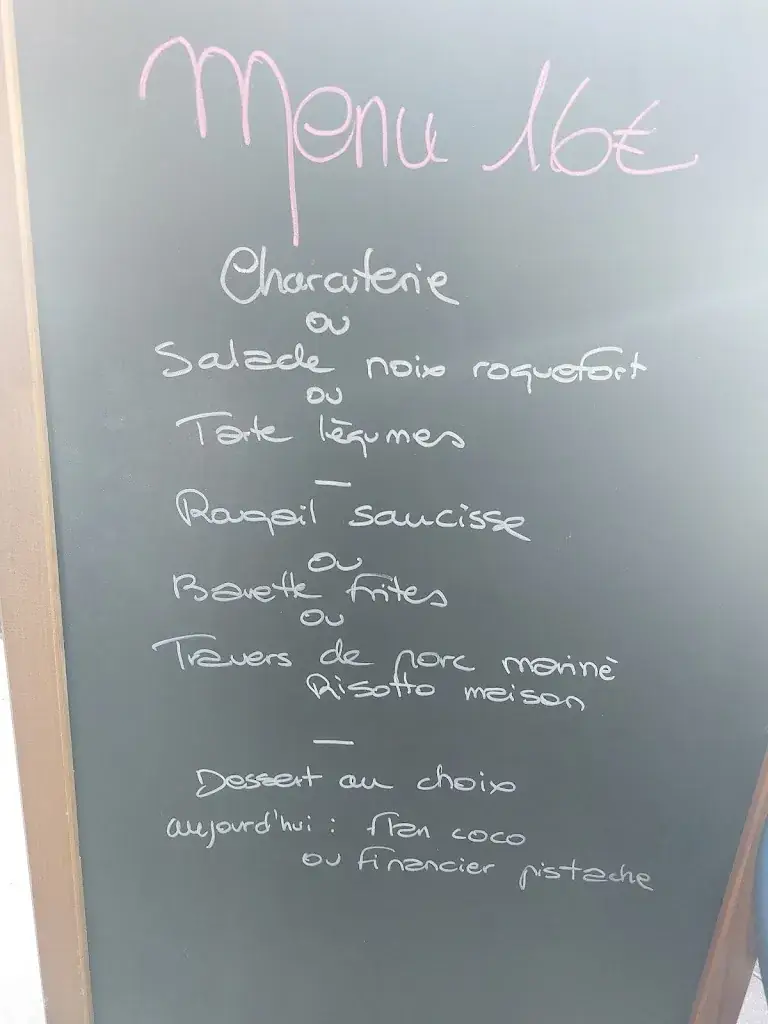 Menu 16€
Charcuterie
ou
Salade noix roquefort
ou
Tarte légumes
—
Rougail saucisse
ou
Bavette frites
ou
Travers de porc mariné
Risotto maison
—
Dessert au choix
aujourd'hui : flan coco
ou financier pistache